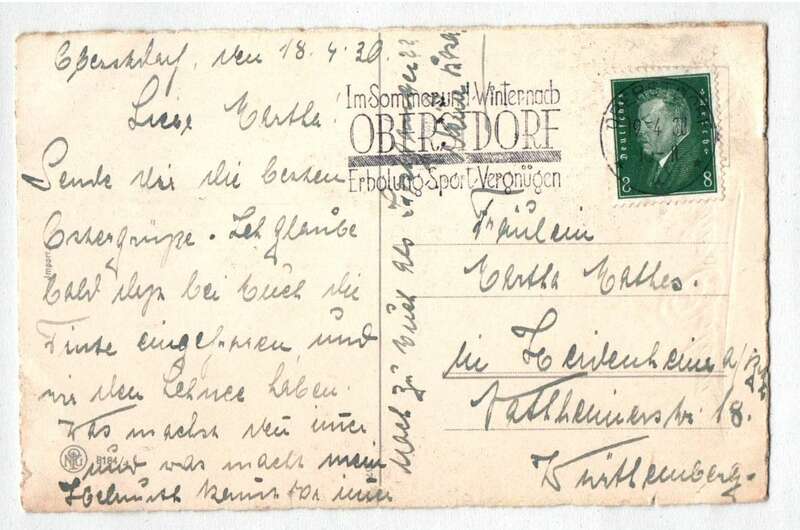 Oberstdorf, den 18.4.30.
Liebe Martha.
Sende dir die besten
Ostergrüße. Ich glaube
bald daß bei Euch die
Tinte eingefroren und
wir den Schnee haben.
Was machst den immer
und was macht mein
Helmuth kannst
Import
NPG
8184
noch zu Euch als
Im Sommer und Winter nach
OBERSTDORF
Erholung·Sport·Vergnügen
Deutsches Reich
8 8
Fräulein
Martha Mathes.
in Heidenheim a/Brz
Nattheimerstr. 18.
Württemberg.